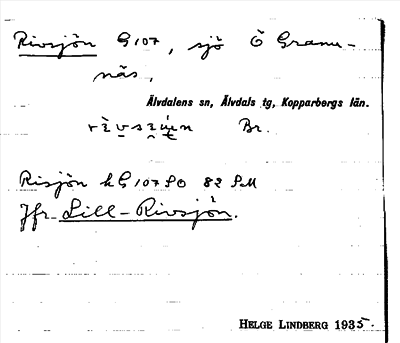 Rivsjön G107, sjö Ö Granu-
näs,
Älvdalens sn, Älvdals tg, Kopparbergs län.
Br.
Risjön kG107SO 82 SM
Jfr Lill-Rivsjön.
HELGE LINDBERG 1935.